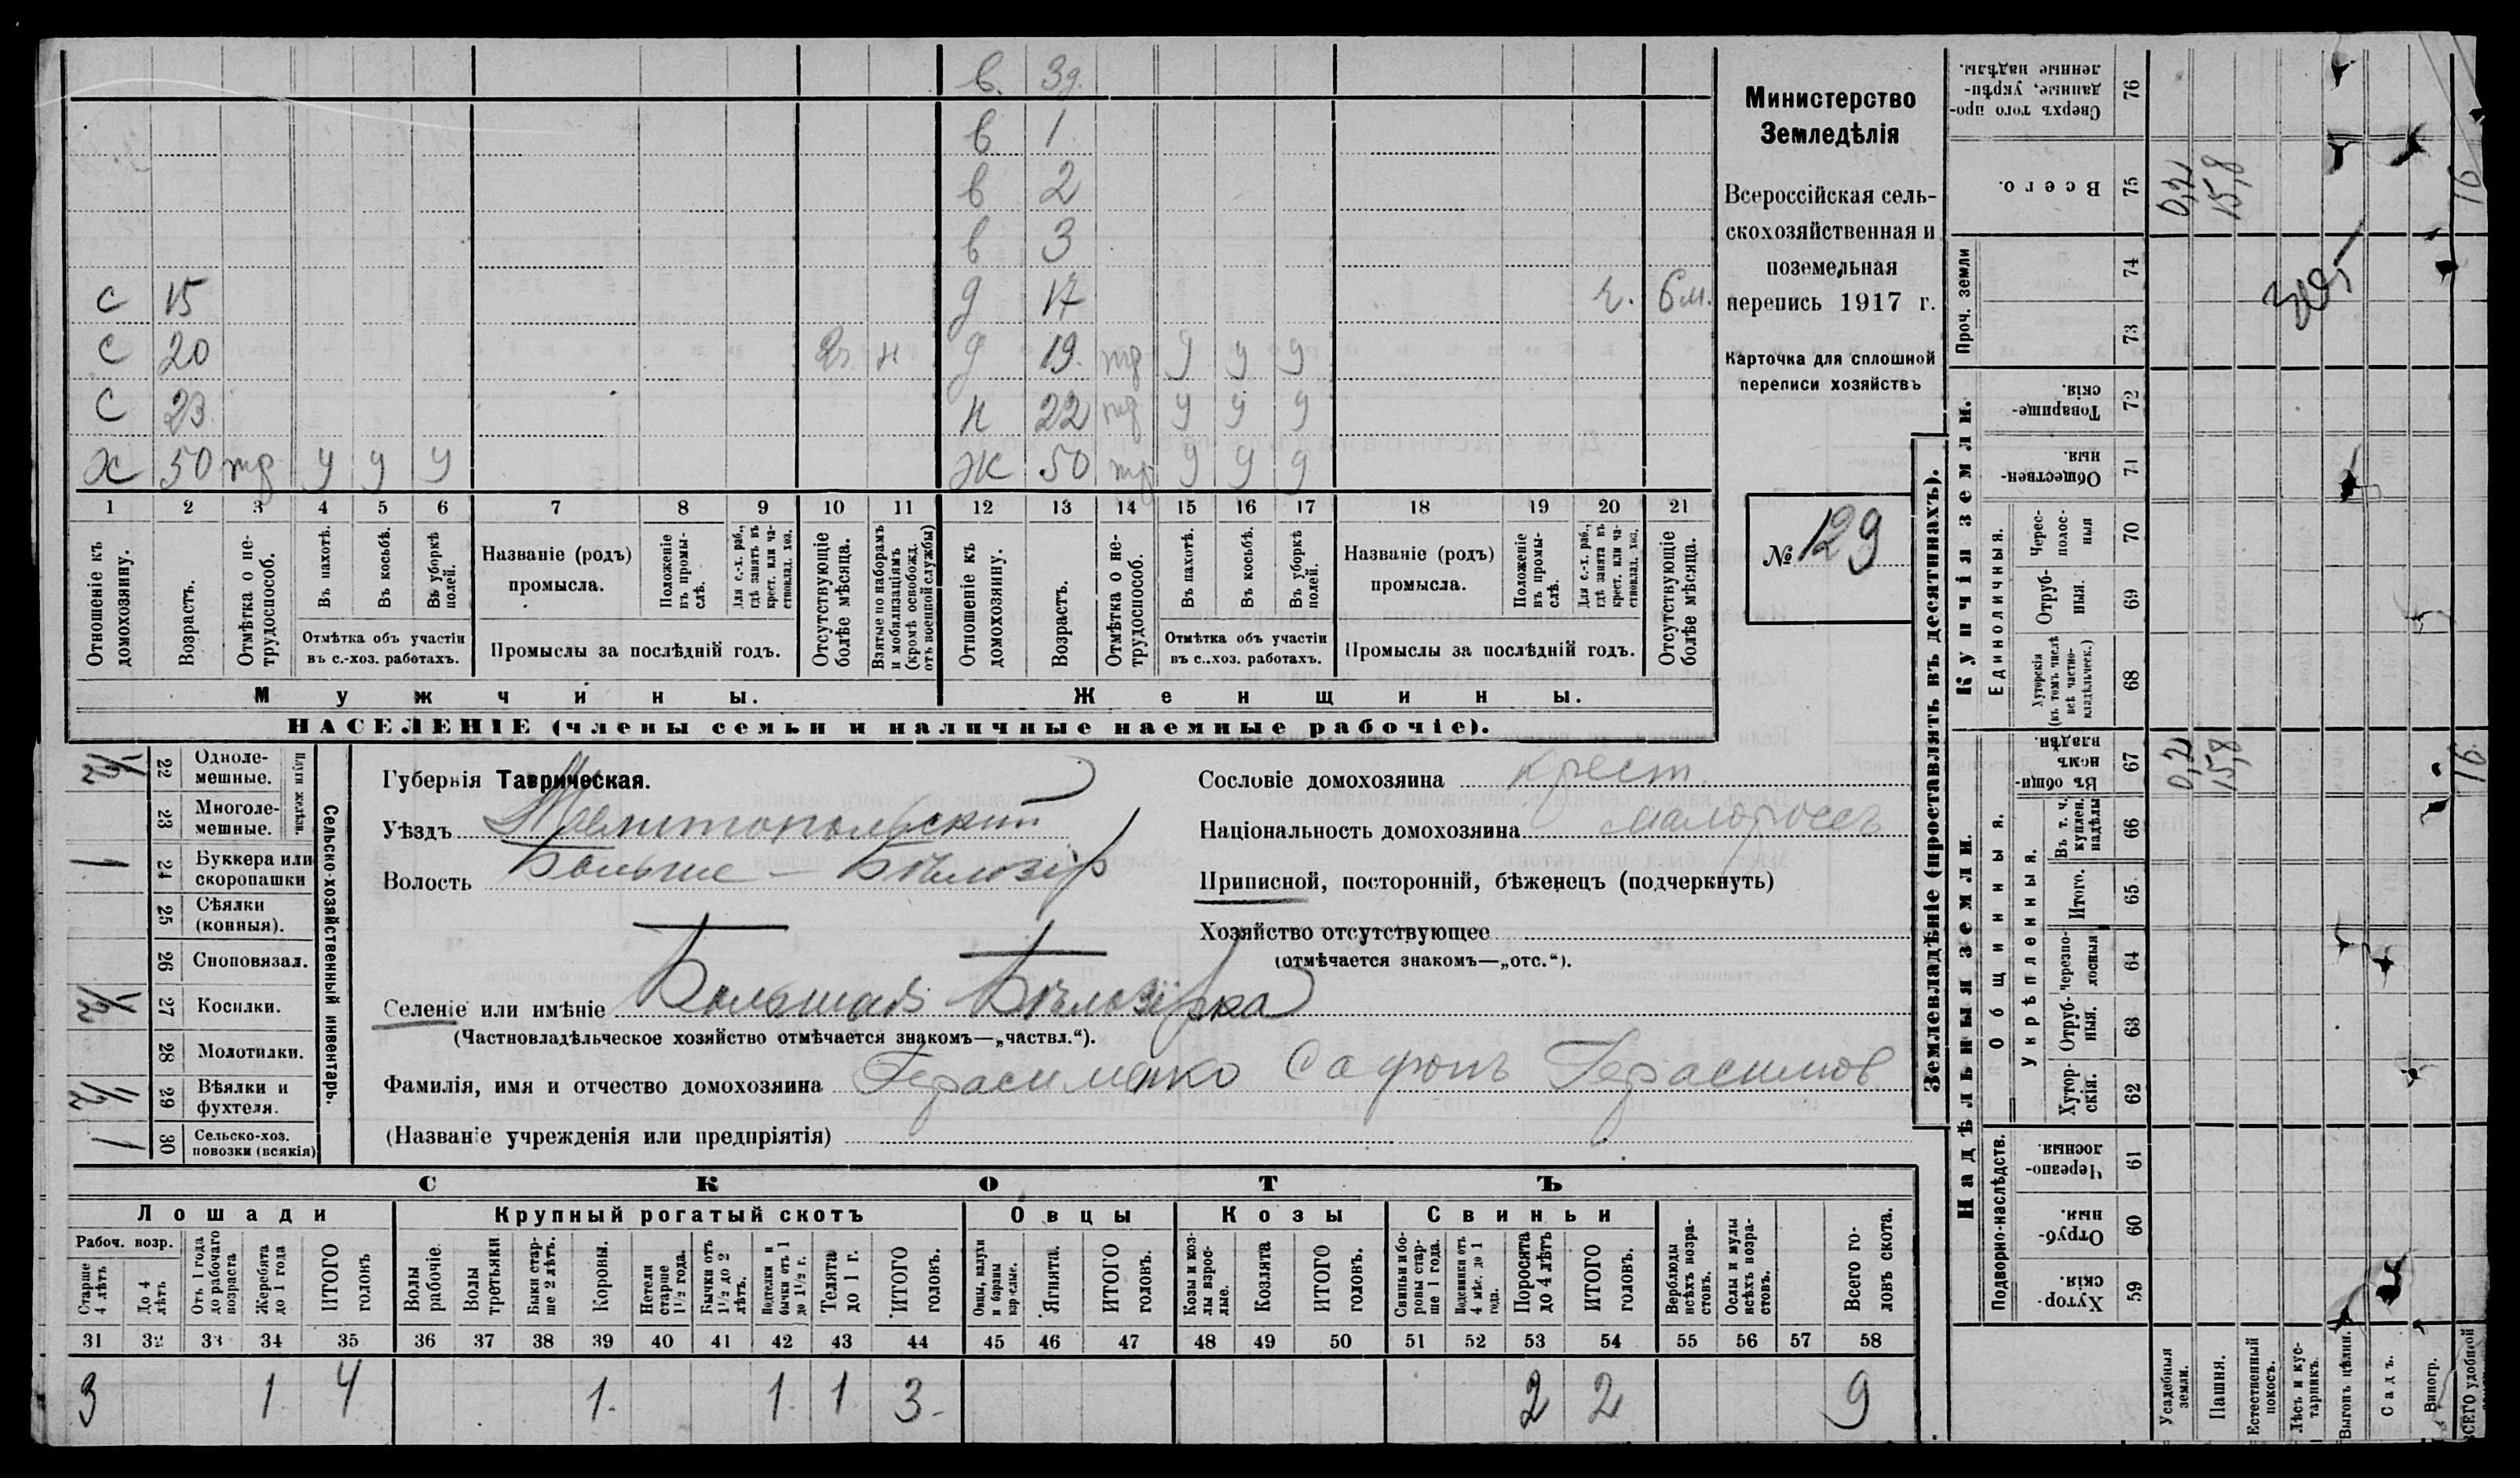 в. 3 д.
в 1
в 2
в 3
с 15 д 17 г. 6 м.
с 20 н д 19. тд у у у
с 23 н 22 тд у у у
х 50 тд у у у ж 50 тд у у у
1 2 3 4 5 6 7 8 9 10 11 12 13 14 15 16 17 18 19 20 21
Отношеніе къ домохозяину.
Возрастъ.
Отмѣтка о нетрудоспособ.
Въ пахотѣ.
Въ косьбѣ.
Въ уборкѣ полей.
Отмѣтка объ участіи въ с.-хоз. работахъ.
Названіе (родъ) промысла.
Положеніе въ промыслѣ.
Для с.-х. раб., гдѣ занятъ въ крест. или частновлад. хоз.
Промыслы за послѣдній годъ.
Отсутствующіе болѣе мѣсяца.
Взятые по наборамъ и мобилизаціямъ (кромѣ освобожд. отъ военной службы)
Отношеніе къ домохозяину.
Возрастъ.
Отмѣтка о нетрудоспособ.
Въ пахотѣ.
Въ косьбѣ.
Въ уборкѣ полей.
Отмѣтка объ участіи въ с..хоз. работахъ.
Названіе (родъ) промысла.
Положеніе въ промыслѣ.
Для с.-х. раб., гдѣ занята въ крест. или частновлад. хоз.
Промыслы за послѣдній годъ.
Отсутствующіе болѣе мѣсяца.
Мужчины. Женщины.
НАСЕЛЕНІЕ (члены семьи и наличные наемные рабочіе).
Министерство
Земледѣлія
Всероссійская сель-
скохозяйственная и
поземельная
перепись 1917 г.
Карточка для сплошной
переписи хозяйствъ
№ 129
22 Одноле-
мешные.
23 Многоле-
мешные.
Плуги желѣзн.
1 24 Буккера или
скоропашки
25 Сѣялки
(конныя).
26 Сноповязал.
27 Косилки.
28 Молотилки.
29 Вѣялки и
фухтеля.
1 30 Сельско-хоз.
повозки (всякія)
Сельско-хозяйственный инвентарь.
Губернія Таврическая.
Уѣздъ Мелитопольскій
Волость Больше-Бѣлозір
Селеніе или имѣніе Большая Бѣлозірка
(Частновладѣльческое хозяйство отмѣчается знакомъ—„частвл.“).
Фамилія, имя и отчество домохозяина Герасименко Сафонъ Герасимов
(Названіе учрежденія или предпріятія)
Сословіе домохозяина крест.
Національность домохозяина малороссъ
Приписной, посторонній, бѣженецъ (подчеркнуть)
Хозяйство отсутствующее
(отмѣчается знакомъ—„отс.“).
СКОТЪ
Лошади Крупный рогатый скотъ Овцы Козы Свиньи
Рабоч. возр.
Старше 4 лѣтъ
До 4 лѣтъ
Отъ 1 года до рабочаго возраста
Жеребята до 1 года
ИТОГО головъ
Волы рабочіе.
Волы третьяки.
Быки старше 2 лѣтъ.
Коровы.
Нетели старше 1½ года.
Бычки отъ 1½ до 2 лѣтъ.
Подтелки и бычки отъ 1 до 1½ г.
Телята до 1 г.
ИТОГО головъ.
Овцы, валухи и бараны взрослые.
Ягнята.
ИТОГО головъ.
Козы и козлы взрослые.
Козлята
ИТОГО головъ.
Свиньи и боровы старше 1 года.
Подсвинки отъ 4 мѣс. до 1 года.
Поросята до 4 лѣтъ
ИТОГО головъ.
Верблюды всѣхъ возрастовъ.
Ослы и мулы всѣхъ возрастовъ.
Всего головъ скота.
31 32 33 34 35 36 37 38 39 40 41 42 43 44 45 46 47 48 49 50 51 52 53 54 55 56 57 58
3 1 4 1. 1 1 3. 2 2 9
Землевладѣніе (проставлять въ десятинахъ).
Купчія земли.
Надѣльныя земли.
Сверхъ того проданные, укрѣпленные надѣлы. 76
Всего. 75 0,2 15,8 16
Проч. земли 74
73
Товарищескія. 72
Общественныя. 71
Единоличныя.
Чересполосныя 70
Отрубныя. 69
Хуторскія (въ томъ числѣ всѣ частновладѣльческ.) 68
Въ общиномъ владѣн. 67 0,2 15,8 16
Общинныя.
Укрѣпленныя.
Въ т. ч. куплен. надѣлы 66
Итого. 65
Черезполосныя 64
Отрубныя. 63
Хуторскія. 62
Подворно-наслѣдств.
Черезполосныя 61
Отрубныя. 60
Хуторскія. 59
Усадебныя земли.
Пашня.
Естественный покосъ.
Лѣсъ и кустарникъ.
Выгонъ цѣлин.
Садъ.
Виногр.
ВСЕГО удобной